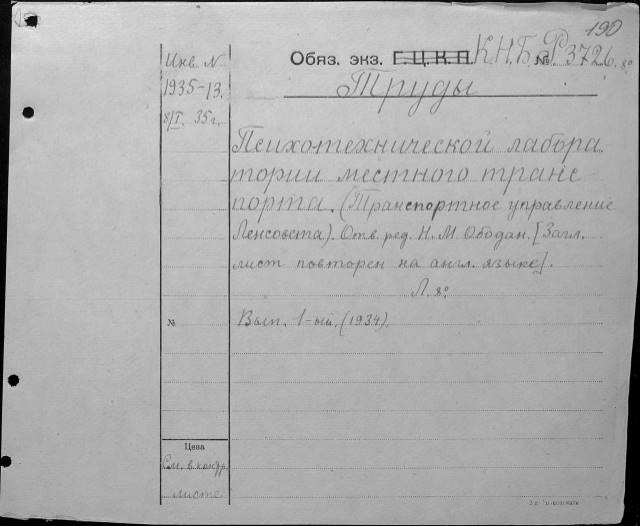 190
Инв. N
1935-13.
8/I. 35г.
Обяз. экз. Г.Ц.К.П. К.Н.Б. № Р3726. 8º
Труды
Психотехнической лабора
тории местного транс
порта. (Транспортное управление
Ленсовета). Отв. ред. Н. М. Ободан. [Загл.
лист повторен на англ. языке].
Л. 8º
№
Вып. 1-ый. (1934).
Цена
См. в контр.
листе